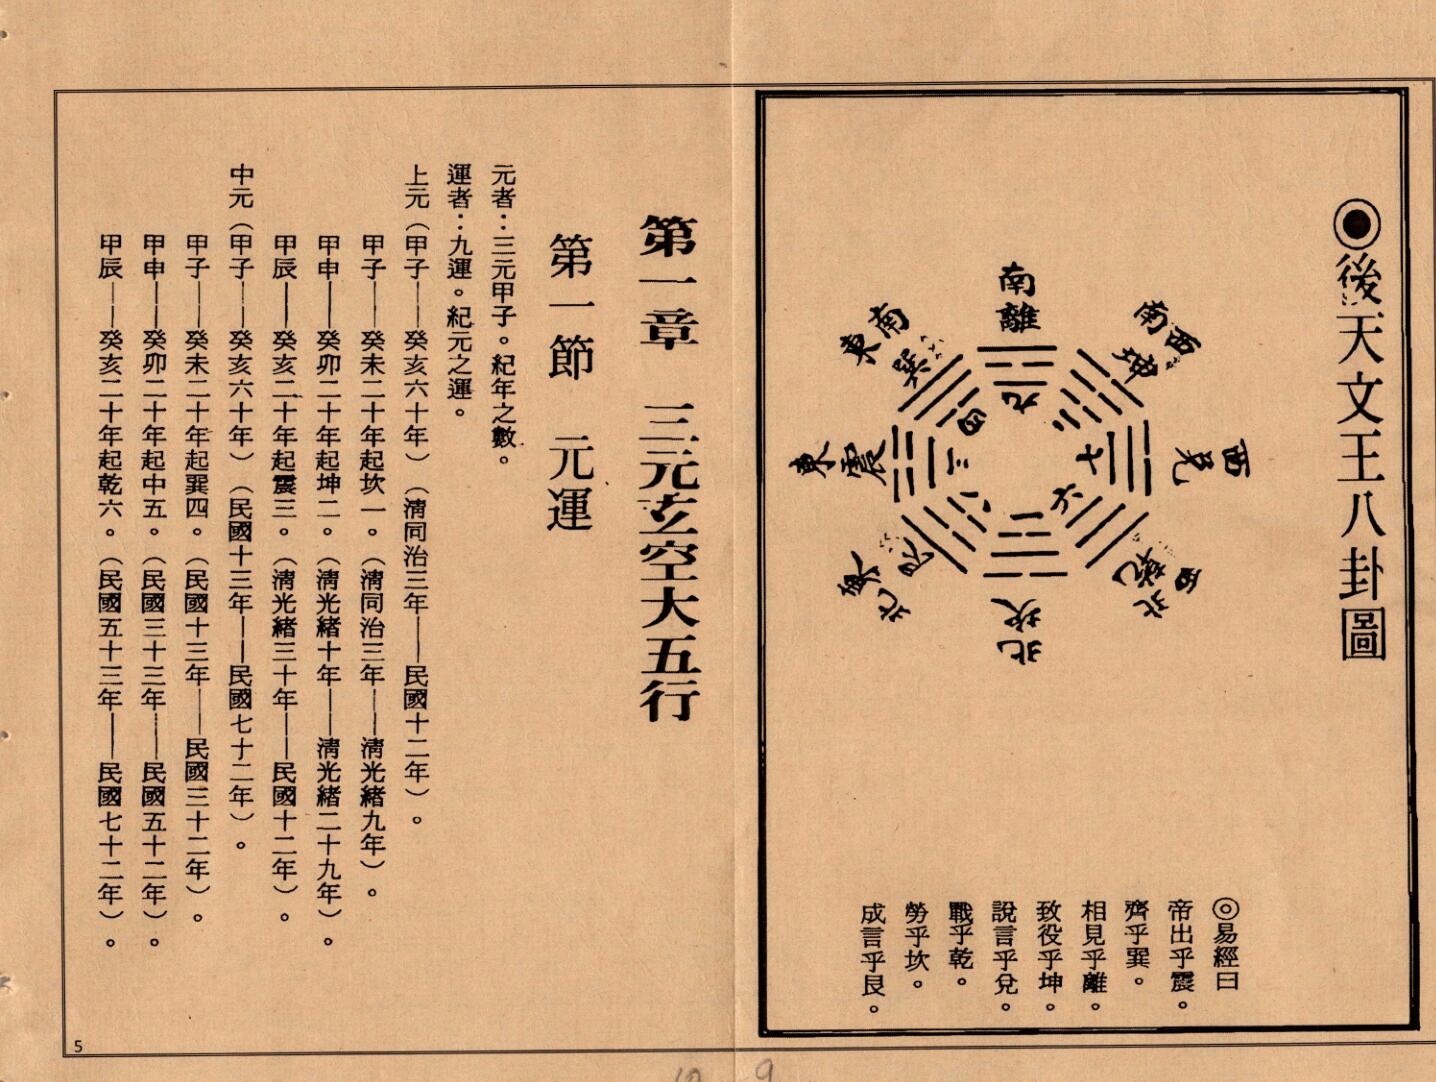 ◉後天文王八卦圖
南
離
西南
坤
西
兌
西北
乾
北
坎
東北
艮
東
震
東南
巽
九
二
七
六
一
八
三
四
◎易經曰
帝出乎震。
齊乎巽。
相見乎離。
致役乎坤。
說言乎兌。
戰乎乾。
勞乎坎。
成言乎艮。
第一章　三元玄空大五行
第一節　元運
元者：三元甲子。紀年之數。
運者：九運。紀元之運。
上元（甲子——癸亥六十年）（清同治三年——民國十二年）。
甲子——癸未二十年起坎一。（清同治三年——清光緒九年）。
甲申——癸卯二十年起坤二。（清光緒十年——清光緒二十九年）。
甲辰——癸亥二十年起震三。（清光緒三十年——民國十二年）。
中元（甲子——癸亥六十年）（民國十三年——民國七十二年）。
甲子——癸未二十年起巽四。（民國十三年——民國三十二年）。
甲申——癸卯二十年起中五。（民國三十三年——民國五十二年）。
甲辰——癸亥二十年起乾六。（民國五十三年——民國七十二年）。
5
9